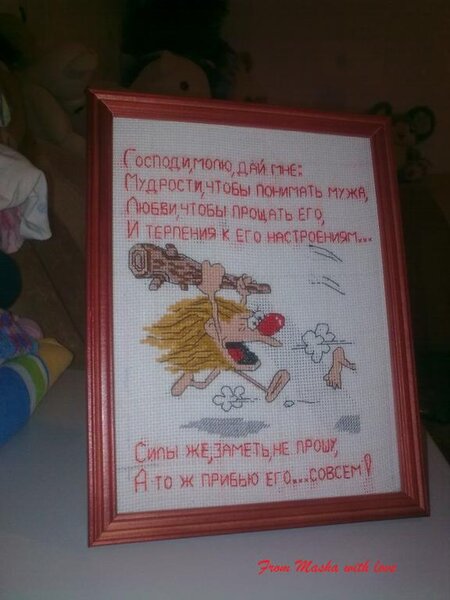 Господи,молю,дай мне:
Мудрости,чтобы понимать мужа,
Любви,чтобы прощать его,
И терпения к его настроениям...
Силы же,заметь,не прошу,
А то ж прибью его...совсем!
From Masha with love